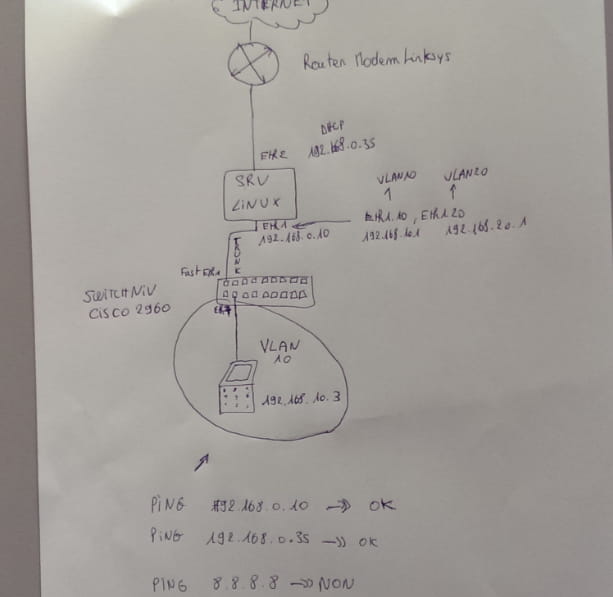 INTERNET
Router Modem Linksys
DHCP
192.168.0.35
Eth2
SRV
LINUX
VLAN10 VLAN20
Eth1 Eth1.10, Eth1.20
192.168.0.10 192.168.10.1 192.168.20.1
TRUNK
FastEth1
SWITCH NIV
CISCO 2960
VLAN
10
192.168.10.3
PING 192.168.0.10 → OK
PING 192.168.0.35 → OK
PING 8.8.8.8 → NON